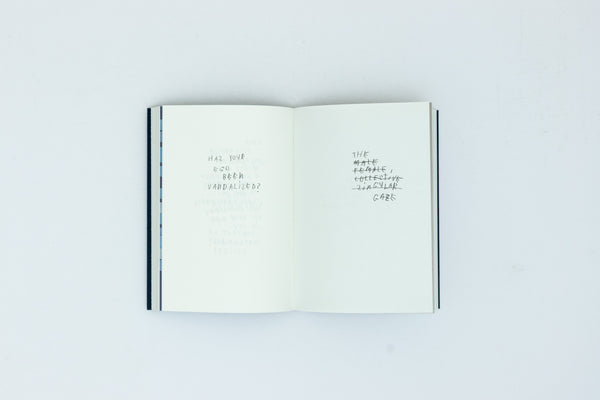 HAS YOUR
EGO
BEEN
VANDALiZED?
THE
MALE
FEMALE,
COLLECTiVE
SiNGULAR
GAZE